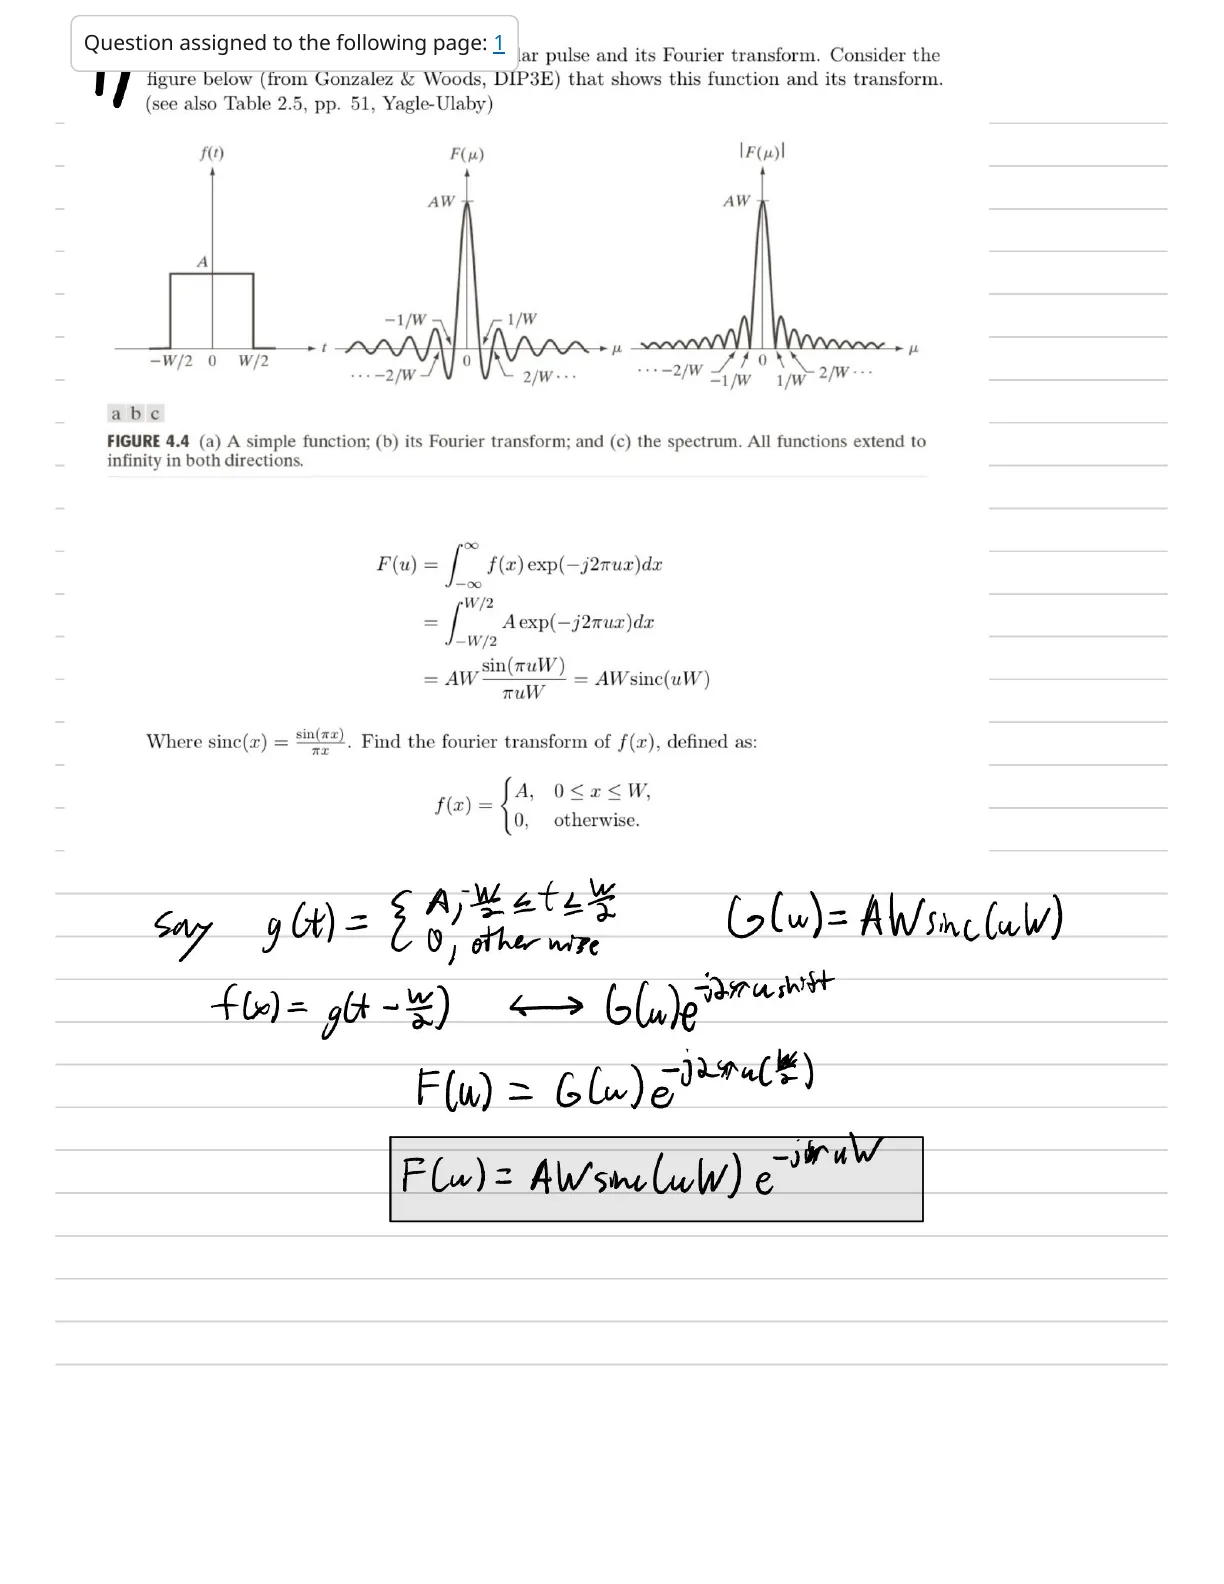 Question assigned to the following page: 1
lar pulse and its Fourier transform. Consider the
figure below (from Gonzalez & Woods, DIP3E) that shows this function and its transform.
(see also Table 2.5, pp. 51, Yagle-Ulaby)
f(t) F(μ) |F(μ)|
AW AW
A
−1/W 1/W
t μ μ
−W/2 0 W/2 0 0
···−2/W 2/W··· ···−2/W −1/W 1/W 2/W···
a b c
FIGURE 4.4 (a) A simple function; (b) its Fourier transform; and (c) the spectrum. All functions extend to
infinity in both directions.
F(u) = ∫_{−∞}^{∞} f(x) exp(−j2πux)dx
= ∫_{−W/2}^{W/2} A exp(−j2πux)dx
= AW sin(πuW)/πuW = AWsinc(uW)
Where sinc(x) = sin(πx)/πx. Find the fourier transform of f(x), defined as:
f(x) = { A, 0 ≤ x ≤ W,
0, otherwise.
Say g(t) = { A, -W/2 ≤ t ≤ W/2 G(u) = AWsinc(uW)
0, otherwise
f(x) = g(t - W/2) ⟷ G(u)e^{-j2πu shift}
F(u) = G(u)e^{-j2πu(W/2)}
F(u) = AWsinc(uW) e^{-jπuW}